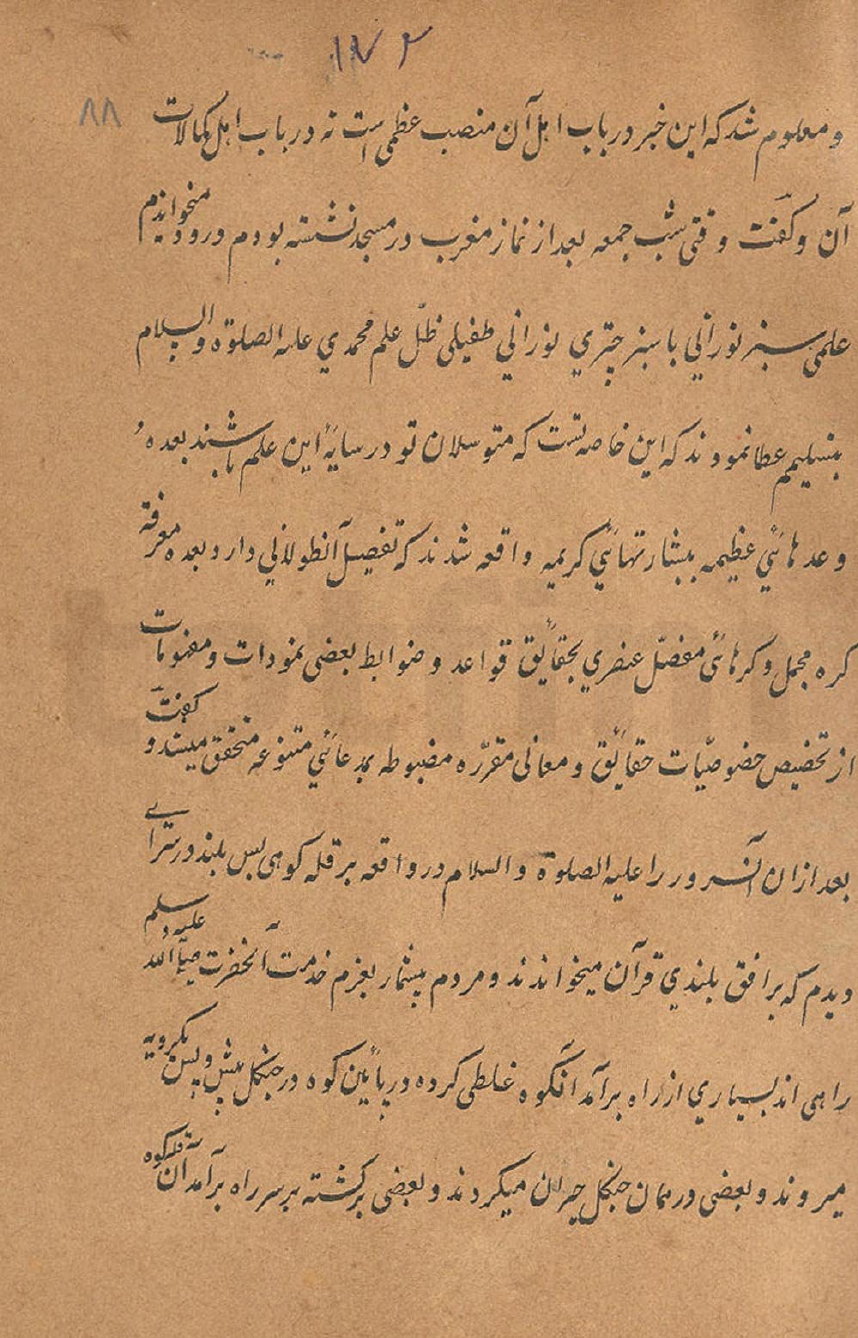 ۱۷۲
۸۸
و معلوم شد که این خبر در باب اهل آن منصب عظمی است نه در باب اهل کمالات
آن و گفت وقتی شب جمعه بعد از نماز مغرب در مسجد نشسته بودم درود میخواندم
علمی سبز نورانی با سبز چتری نورانی طفیلی ظلّ علم محمدي علیه الصلوة والسلام
بتسلیم عطا نمودند که این خاصه تست که متوسلان تو در سایۀ این علم باشند بعده
وعدهائي عظیمه ببشارتهائي کریمه واقعه شدند که تفصیل آنطولانی دارد بعده معرفة
کره مجمل و کرهائي مفصّل عنصري بحقایق قواعد و ضوابط بعضی نمودات و مفهومات
از تخصیص خصوصیّات حقایق و معانی مقرّره مضبوطه بمدعائي متنوعه متحقق میشد و گفت
بعد ازان آنسرور را علیه الصلوة والسلام در واقعه بر قله کوهی بس بلند در سرای
دیدم که بر افق بلندي قرآن میخواندند و مردم بیشمار بعزم خدمت آنحضرت صلی الله علیه وسلم
راهی اند بسیاري از راه برآمد آنکوه غلطی کرده در پائین کوه در جنگل پیش و پس یکرویه
میروند و بعضی در همان جنگل حیران میگردند و بعضی برگشته بر سر راه برآمد آن قله کوه